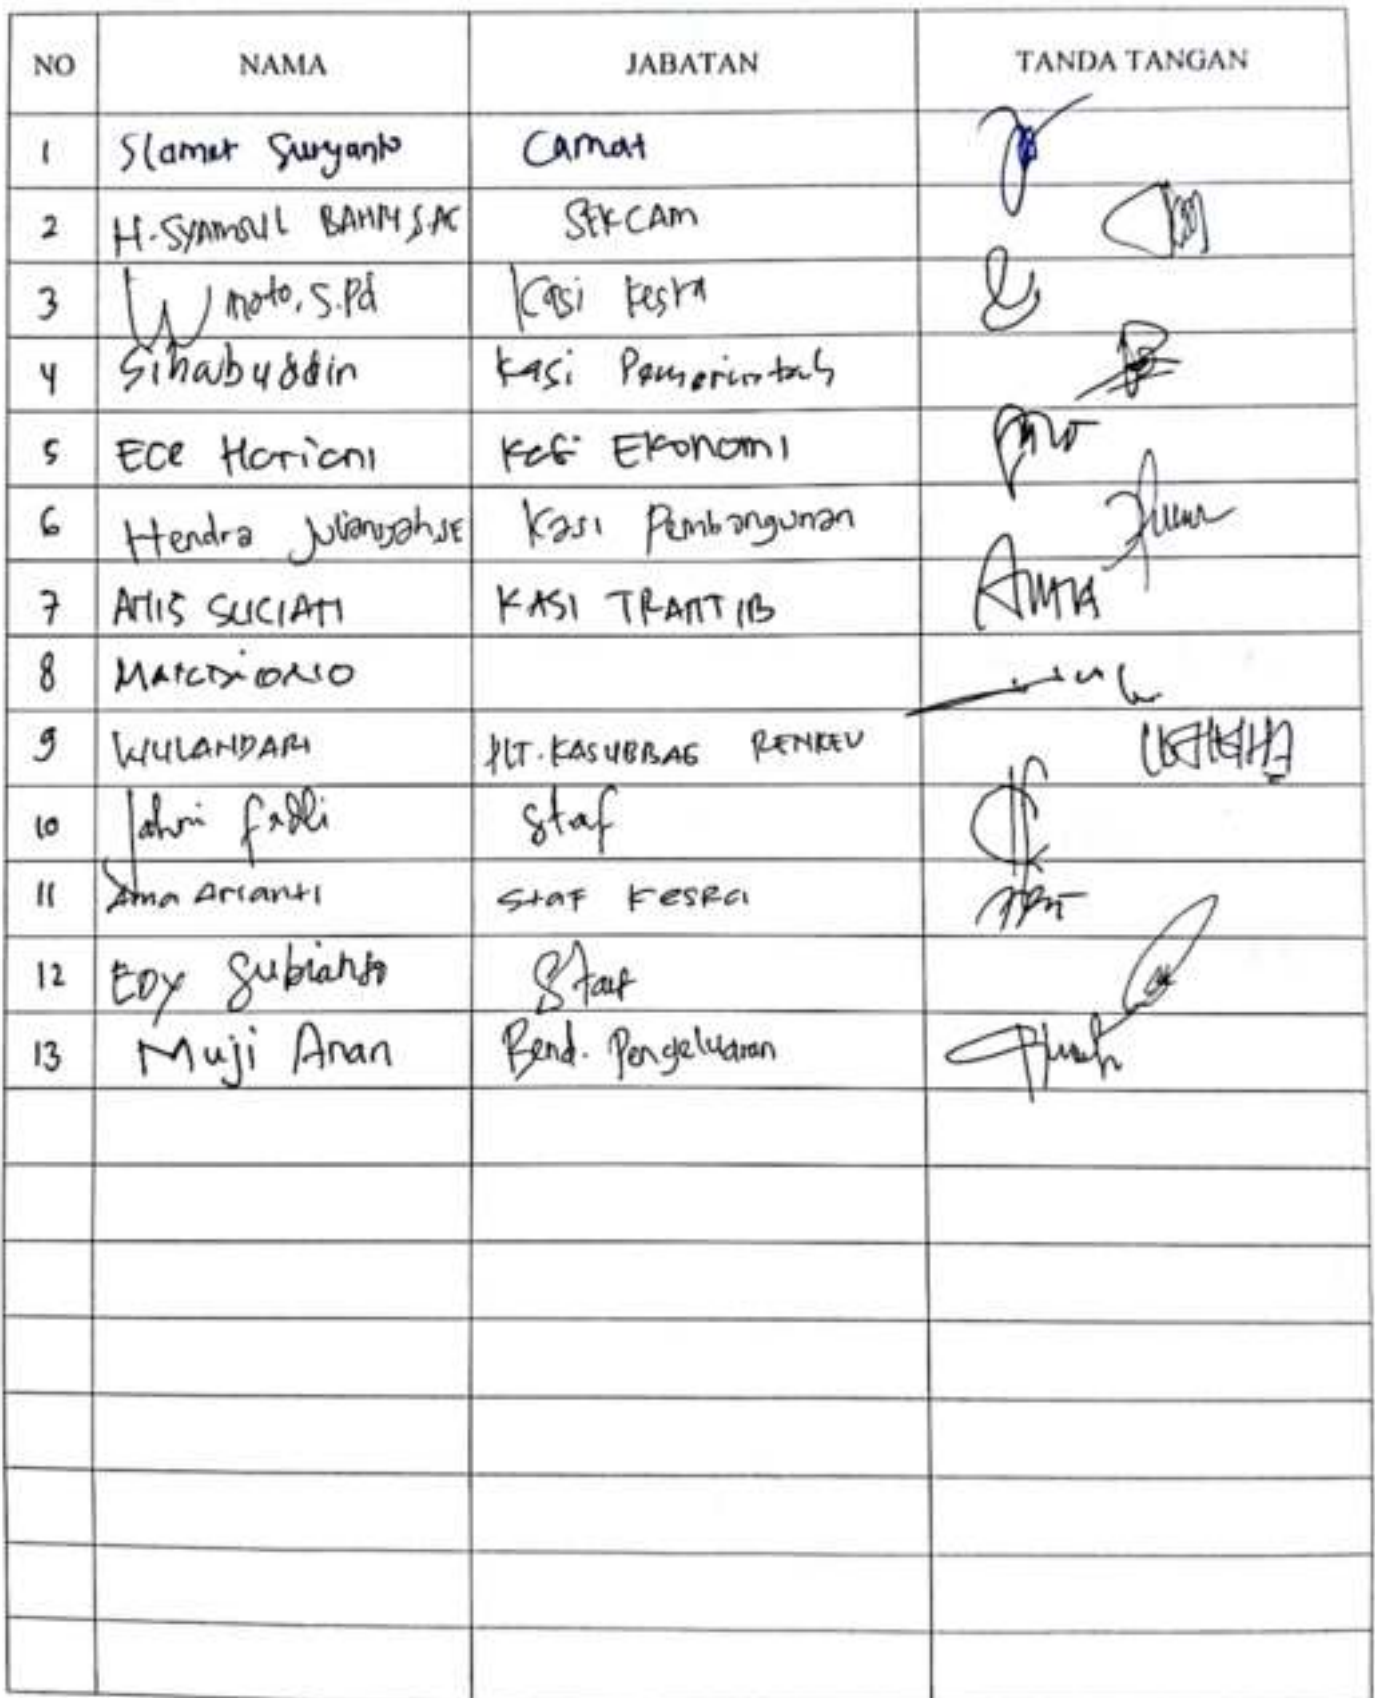 NO NAMA JABATAN TANDA TANGAN
1 Slamet Suryanto Camat
2 H. SYAMSUL SEKCAM
3 Kasi Kesra
4 Sihabuddin Kasi Pemerintah
5 Ece Hariani Kasi Ekonomi
6 Hendra Juliansyah, SE Kasi Pembangunan
7 ANIS SUCIATI KASI TRANTIB
8
9 WULANDARI PLT. KASUBBAG RENKEU
10 Jahri Fadli Staf
11 Arianti Staf Kesra
12 EDY Subianto Staf
13 Muji Anan Bend. Pengeluaran